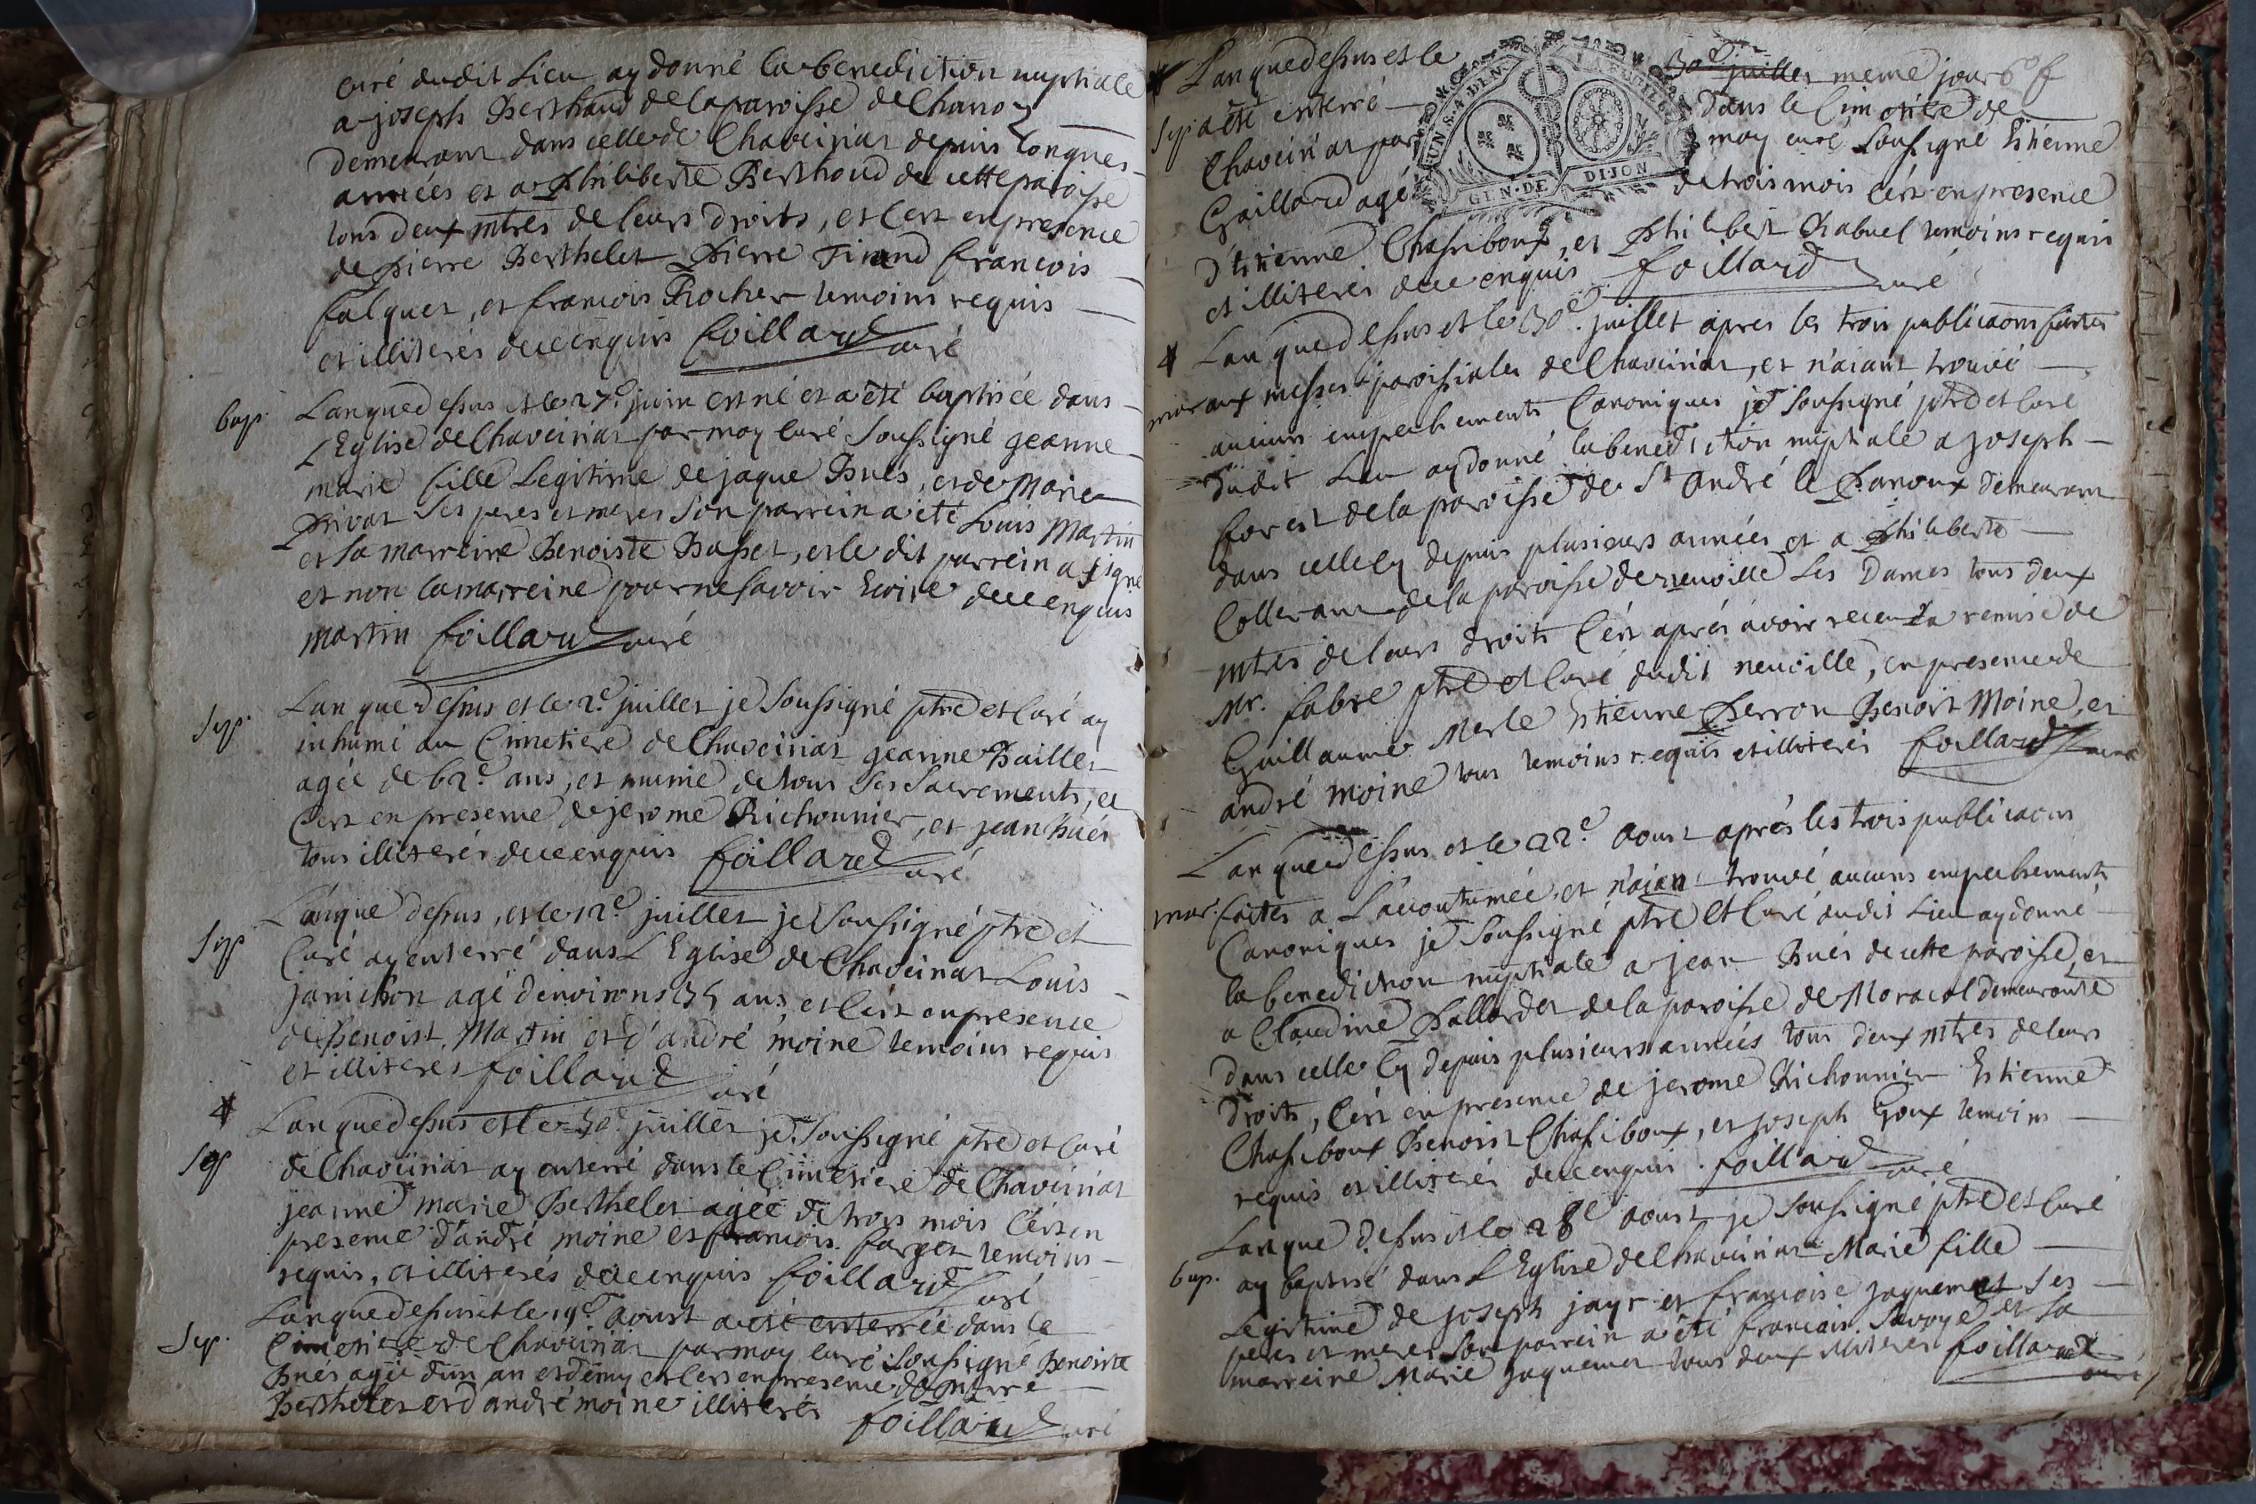 curé dudit Lieu ay donné la benediction nuptiale
a joseph Berthaud de la paroisse de Chano
demeurant dans celle de Chaveiriat depuis longues
années et a Philiberte Berthoud de cette paroisse
tous deux mtres de leurs droits, et c'est en presence
de Pierre Berthelet Pierre Tirand francois
falquet, et francois Rocher temoins requis
et illiterés de ce enquis foillard curé
bap. L'an que dessus et le 27e. juin est né et a été baptisée dans
L'Eglise de Chaveiriat par moy curé Soussigné geanne
marie fille Legitime de jaque Bués, et de Marie
Privat Ses peres et meres Son parrein a été Louis Martin
et Sa marreine Benoiste Basset, et le dit parrein a signé
et non la marreine pour ne savoir Ecrire de ce enquis
martin foillard curé
Sep. L'an que dessus et le 2e. juillet je Soussigné ptre et Curé ay
inhumé au Cimetiere de Chaveiriat geanne Paillet
agée de 62e. ans, et munie de tous Ses Sacrements, et
C'est en presence de jerome Richonnier, et jean Bués
tous illiterés de ce enquis foillard curé
Sep L'an que dessus, et le 12e. juillet je Soussigné ptre et
Curé ay enterré dans L'Eglise de Chaveiriat Louis
janichon agé d'environs 35 ans, et C'est en presence
de Benoist Martin et d'andré moine temoins requis
et illiteres foillard curé
Sep L'an que dessus et le 30e. juillet je Soussigné ptre et Curé
de Chaveiriat ay enterré dans le Cimetiere de Chaveiriat
jeanne marie Berthelet agée de trois mois C'est en
presence d'andré moine et francois farget temoins
requis, et illiterés de ce enquis foillard curé
Sep. L'an que dessus et le 19e. aoust a été enterrée dans le
Cimetiere de Chaveiriat par moy curé Soussigné Benoiste
Bués agée d'un an et demy et c'est en presence de pierre
Berthelet et d'andré moine illiterés foillard curé
L'an que dessus et le 30e. juillet meme jour
Sep. a été enterré dans le Cimetiere de
Chaveiriat par moy curé Soussigné Estienne
Gaillard agé de trois mois c'est en presence
d'Estienne Chassiboux, et Philibert Rabuel temoins requis
et illiterés de ce enquis foillard curé
GEN. DE DIJON
L'an que dessus et le 30e. juillet apres les trois publicaons faites
mar aux messes paroissiales de Chaveiriat, et n'aiant trouvé
aucuns empechements Canoniques je Soussigné ptre et Curé
dudit Lieu ay donné la benediction nuptiale a joseph
forest de la paroisse de St andré le Panoux demeurant
dans celle cy depuis plusieurs années et a Philiberte
Colleram de la paroisse de neuville Les Dames tous deux
mtres de leurs droits C'est aprés avoir receu la remise de
Mr. fabre ptre et Curé dudit neuville, en presence de
Guillaume Merle Estienne Perron Benoist Moine, et
andré moine tous temoins requis et illiterés foillard curé
L'an que dessus et le 22e. aoust aprés les trois publicaons
mar. faites a L'accoutumée, et n'aian trouvé aucuns empechements
Canoniques je Soussigné ptre et Curé dudit Lieu ay donné
la benediction nuptiale a jean Bués de cette paroisse, et
a Claudine Pallordet de la paroisse de Moracol demeurante
dans celle cy depuis plusieurs années tous deux mtres de leurs
droits, C'est en presence de jerome Richonnier Estienne
Chassiboux Benoist Chassiboux, et joseph Goux temoins
requis et illiterés de ce enquis. foillard curé
L'an que dessus et le 28e aoust je Soussigné ptre et Curé
bap. ay baptisé dans L'Eglise de Chaveiriat Marie fille
Legitime de joseph jayr et francoise jaquemet Ses
peres et meres Son parrein a été francois Savoye et Sa
marreine Marie jaquemet tous deux illiteres foillard curé